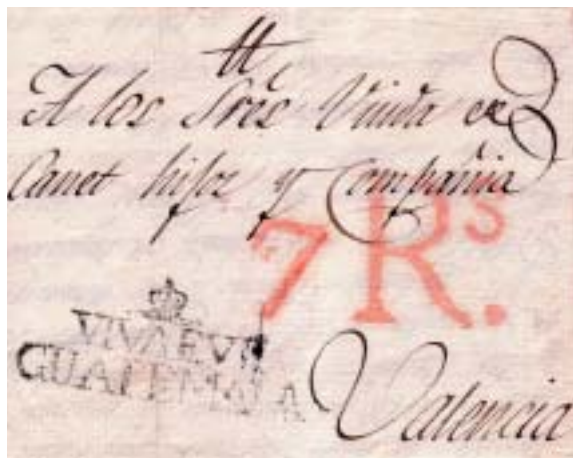 A los Sres Viuda de
Canet hijos y Compañia
7 Rs.
GUATEMALA
Valencia